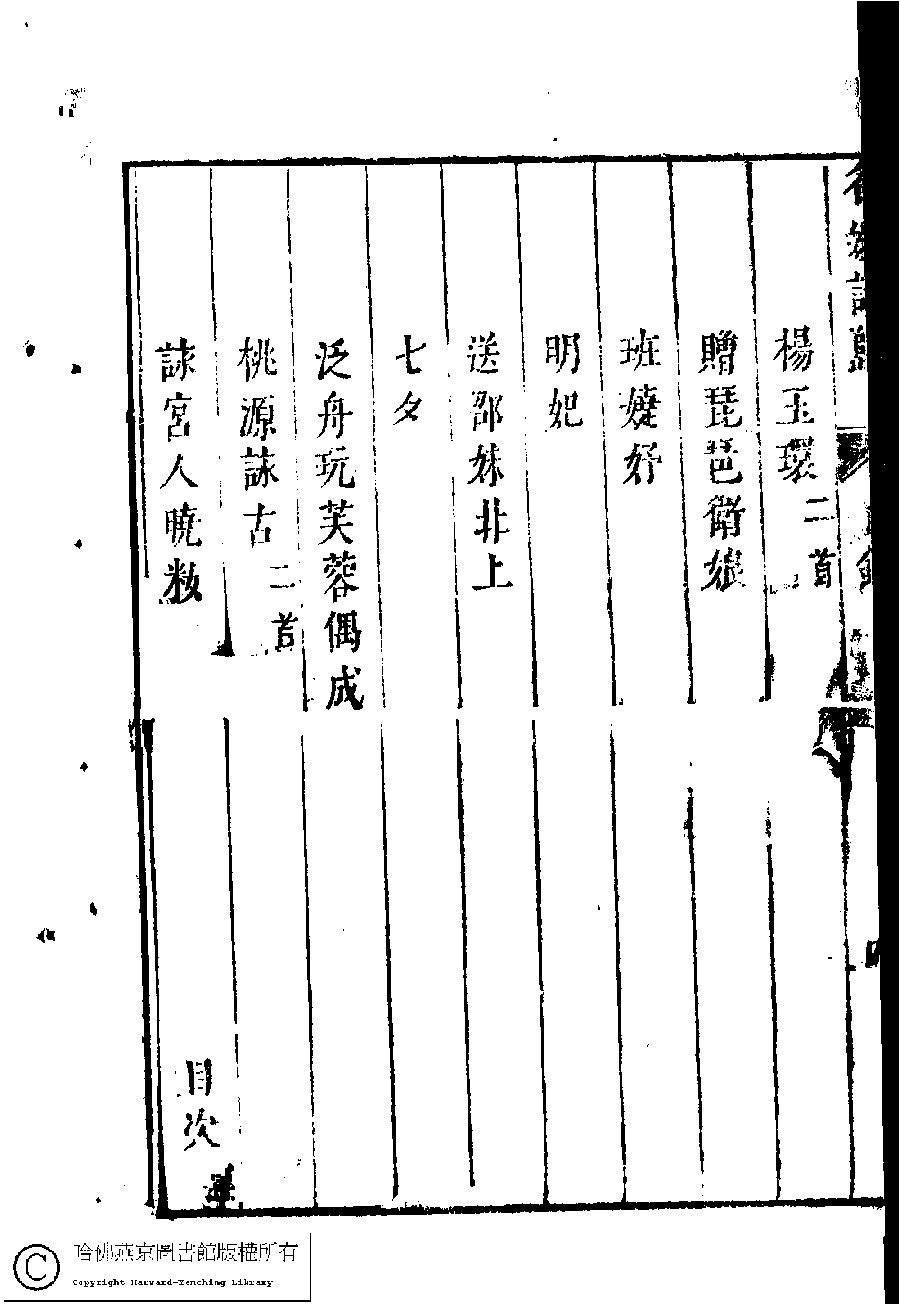 楊玉環二首
贈琵琶衛娘
班婕妤
明妃
送邵妹北上
七夕
泛舟玩芙蓉偶成
桃源詠古二首
詠宮人曉粧
目次
哈佛燕京圖書館版權所有
Copyright Harvard-Yenching Library